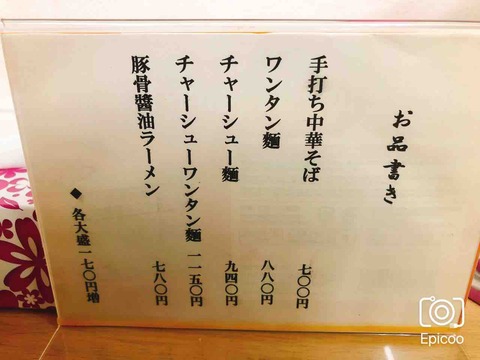 お品書き
手打ち中華そば 七〇〇円
ワンタン麺 八八〇円
チャーシュー麺 九四〇円
チャーシューワンタン麺 一一五〇円
豚骨醬油ラーメン 七八〇円
◆ 各大盛一七〇円増
Epicoo